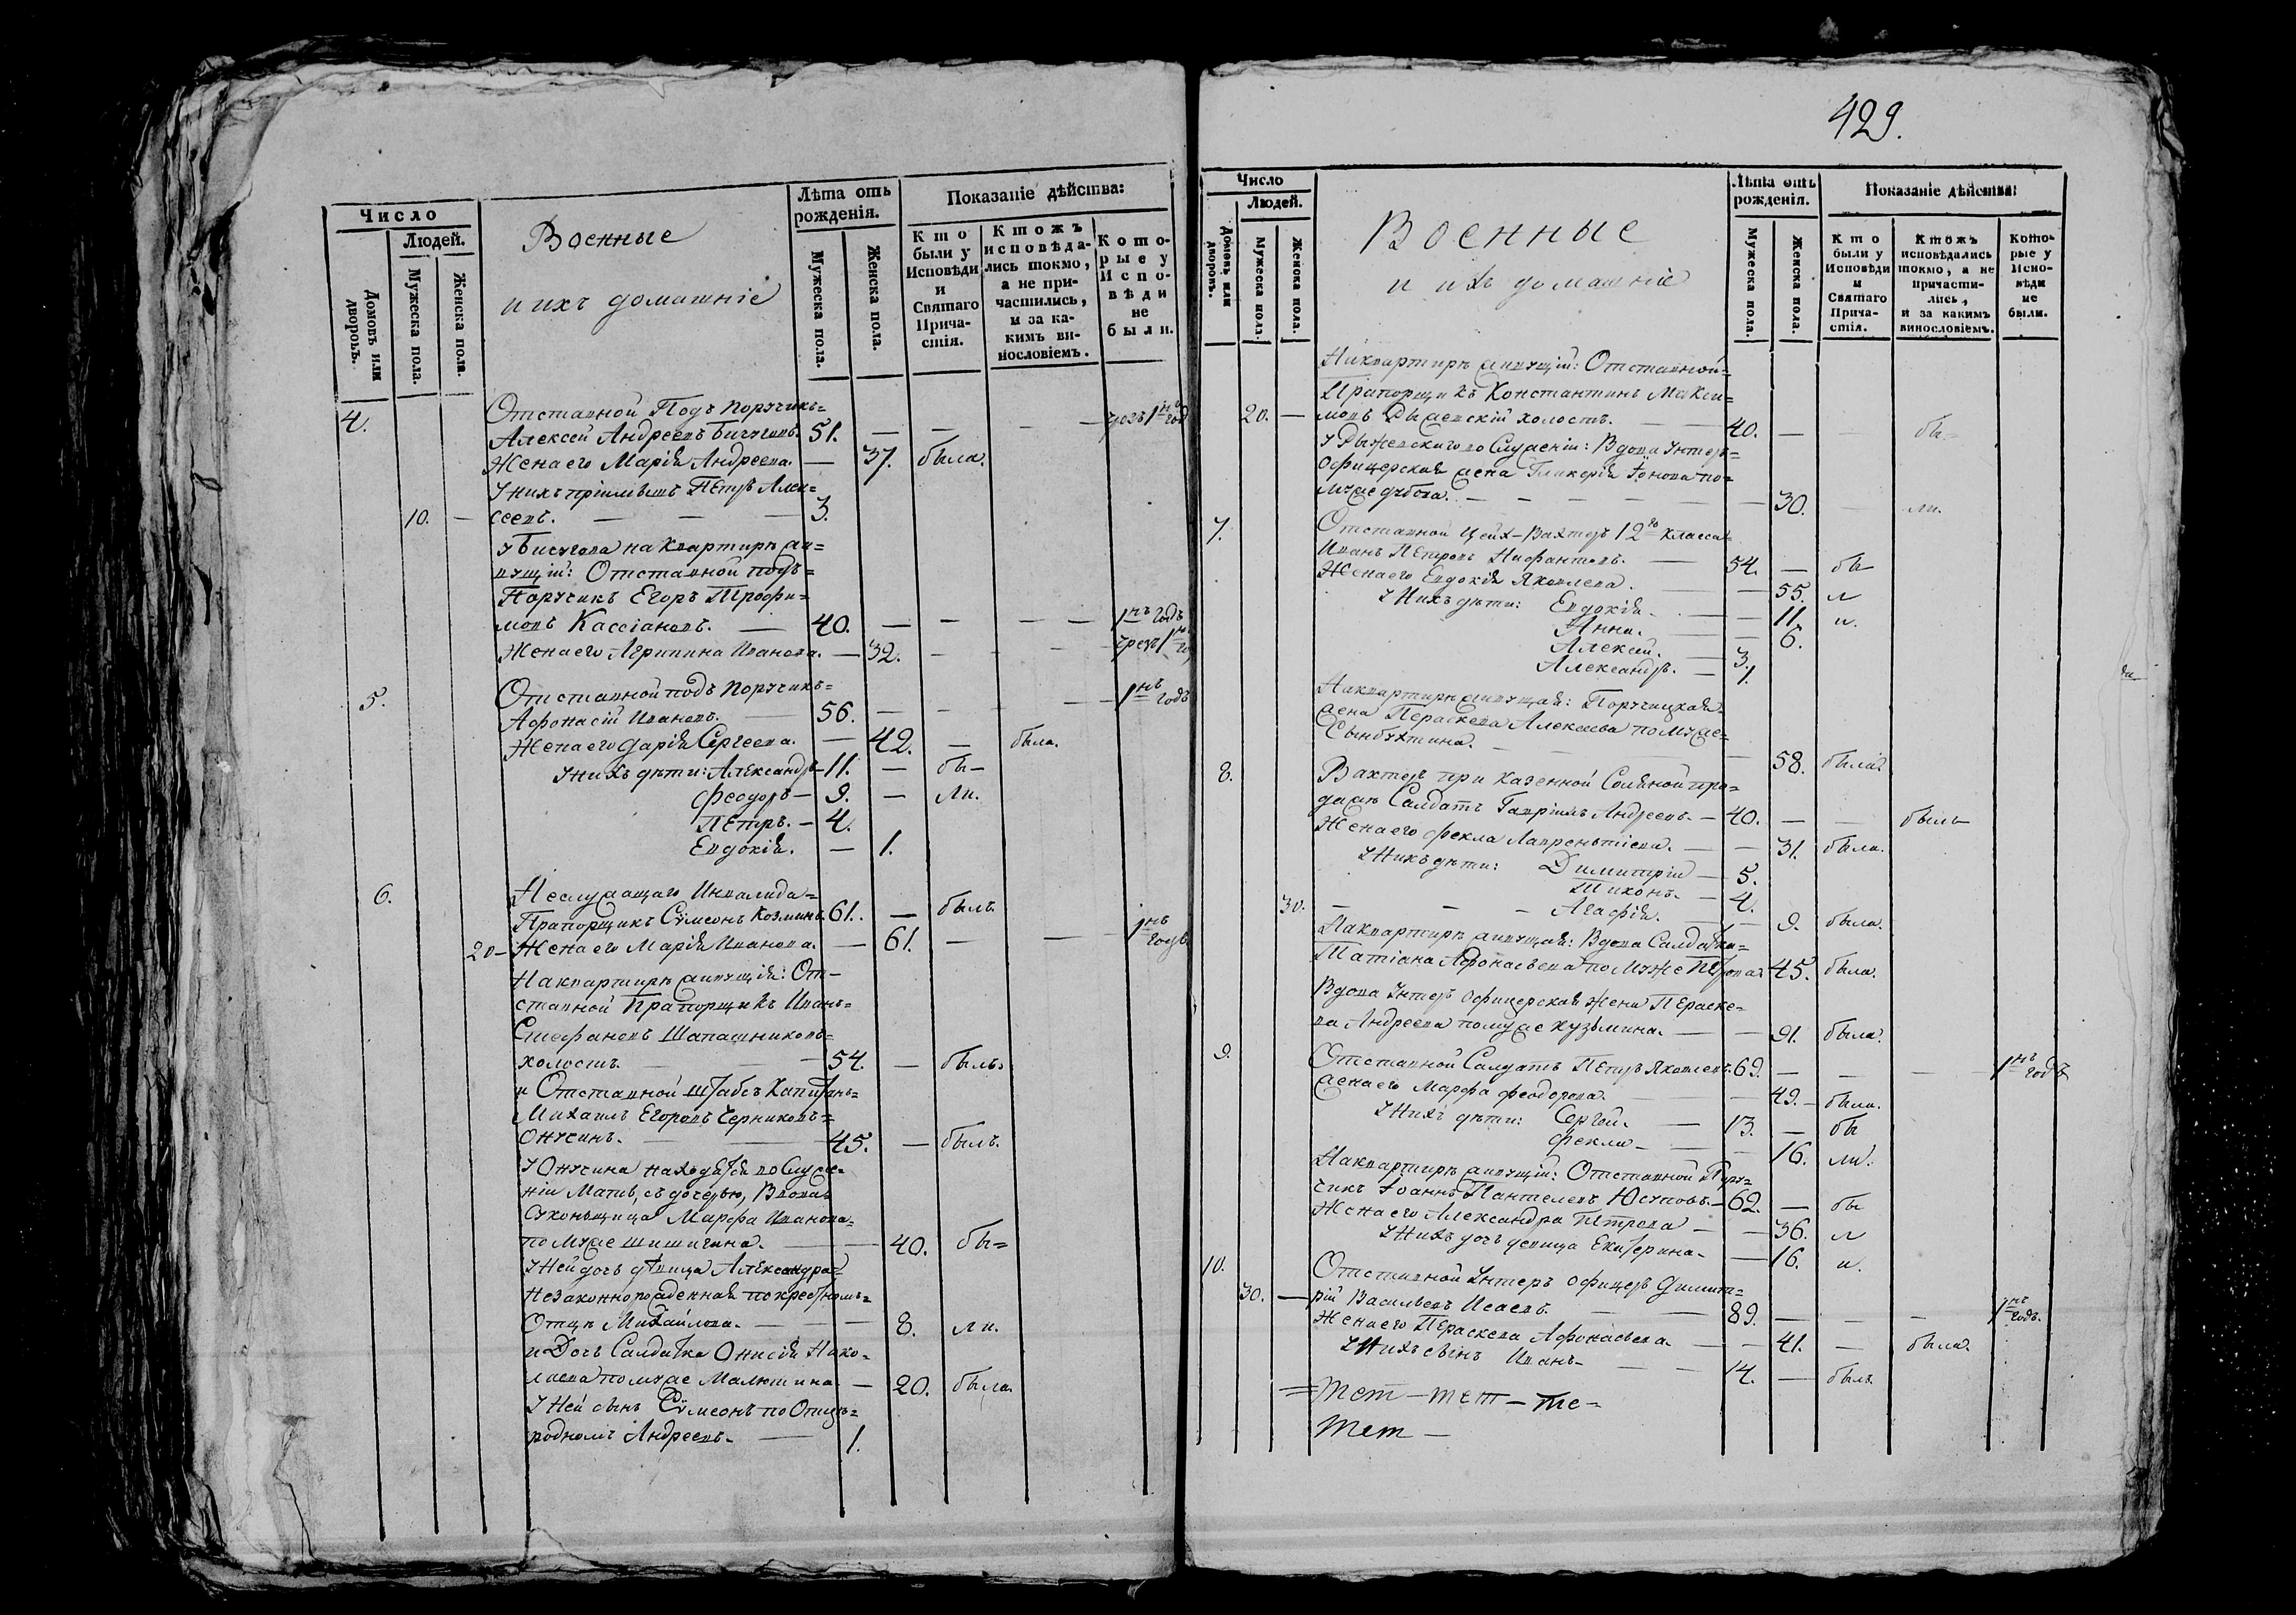 Число
Людей.
Домовъ или дворовъ.
Мужеска пола.
Женска пола.
Военные
и ихъ домашніе
Лѣта отъ рожденія.
Мужеска пола.
Женска пола.
Показаніе дѣйства:
Кто были у Исповѣди и Святаго Причастія.
Ктожъ исповѣдались токмо, а не причастились, и за какимъ винословіемъ.
Которые у Исповѣди не были.
4. Отставной Подъ Поручикъ=
Алексѣй Андреевъ 51. — — — — чрезъ 1нъ годъ
Жена его Марія Андреева. — 37. была.
У нихъ пріимышъ Петръ Алек=
10. — сеевъ. — — — 3.
на квартирѣ жи=
вущій: Отставной подъ=
Поручикъ Егоръ Трофи=
мовъ Кассіановъ. — 40. — — — — 1нъ годъ
Жена его Агрипина Иванова. — 32. — — — чрезъ 1нъ
5. Отставной подъ Поручикъ=
Афонасій Ивановъ. — 56. — — — — 1нъ годъ
Жена его Дарія Сергеева. — 42. — была.
У нихъ дѣти: Александръ — 11. — бы—
Феодоръ — 9. — ли.
Петръ. — 4.
Евдокія. — 1.
6. Неслужащаго Инвалида=
Прапорщикъ Сѵмеонъ Козминъ. 61. — былъ.
20 — Жена его Марія Иванова. — 61. — — 1нъ годъ.
На квартирѣ живущія: От—
ставной Прапорщикъ Иванъ=
Стефановъ Шапашниковъ=
холостъ. — 54. — былъ.
и Отставной Штабсъ Капитанъ=
Михаилъ Егоровъ Черниковъ=
Онучинъ. — 45. — былъ.
У Онучина находятся во Служе=
ніи Мать, съ дочерью, Вдова
Марфа Иванова=
по мужѣ Шишигина. — — 40. бы=
У Ней дочь дѣвица Александра=
Незаконнорожденная по крестномъ=
Отцѣ Михайлова. — — — 8. ли.
и Дочь Салдатка Онисія Нико=
лаева по мужѣ Малютина — 20. была.
У Ней сынъ Сѵмеонъ по Отцѣ=
родномъ Андреевъ. — 1.
429.
Число
Людей.
Домовъ или дворовъ.
Мужеска пола.
Женска пола.
Военные
и ихъ домашніе
Лѣта отъ рожденія.
Мужеска пола.
Женска пола.
Показаніе дѣйства:
Кто были у Исповѣди и Святаго Причастія.
Ктожъ исповѣдались токмо, а не причастились, и за какимъ винословіемъ.
Которые у Исповѣди не были.
На квартирѣ живущій: Отставной=
Прапорщикъ Константинъ Макси=
20. — мовъ холостъ. — — 40. — — бы=
У во Служеніи: Вдова Унтеръ=
Офицерская жена Гликерія по=
— — — — — 30. — ли.
7. Отставной Цейх-Вахтеръ 12го класса
Иванъ Петровъ Нифантовъ. — 54. — бы—
Жена его Евдокія Яковлева. — — 55. л
У Нихъ дѣти: Евдокія. — — 11. и.
Анна. — — 6.
Алексѣй. — 3.
Александръ. — 1.
На квартирѣ живущая: Поручицкая=
жена Параскева Алексеева по мужѣ=
— — 58. была.
8. Вахтеръ при Казенной Соляной про=
дажѣ Салдатъ Гавріилъ Андреевъ. — 40. — — былъ
Жена его Фекла Лаврентіева. — — 31. была.
У Нихъ дѣти: Димитрій — 5.
Тихонъ. — 4.
30. — — — Агафія. — 9. была.
На квартирѣ живущая: Вдова Салдатка=
Татіана Афонасьева по мужѣ Петрова 45. была.
Вдова Унтеръ Офицерская Жена Параске=
ва Андреева по мужѣ Кузьмина. — — 91. была.
9. Отставной Салдатъ Петръ Яковлевъ. 69. — — — 1нъ годъ
Жена его Марфа Феодорова. — — 49. — была.
У Нихъ дѣти: Сергей. — 13. — бы
Фекла — — 16. ли.
На квартирѣ живущій: Отставной Пору=
чикъ Іоаннъ Пантелеевъ Юсуповъ. — 62. — бы
Жена его Александра Петрова — — 36. л
У Нихъ дочь девица Екатерина — — 16. и.
10. Отставной Унтеръ Офицеръ Димит=
30. — рій Васильевъ Исаевъ. — — 89. — — — 1нъ годъ.
Жена его Параскева Афонасьева. — — 41. — была.
У Нихъ сынъ Иванъ — — — 14. — былъ